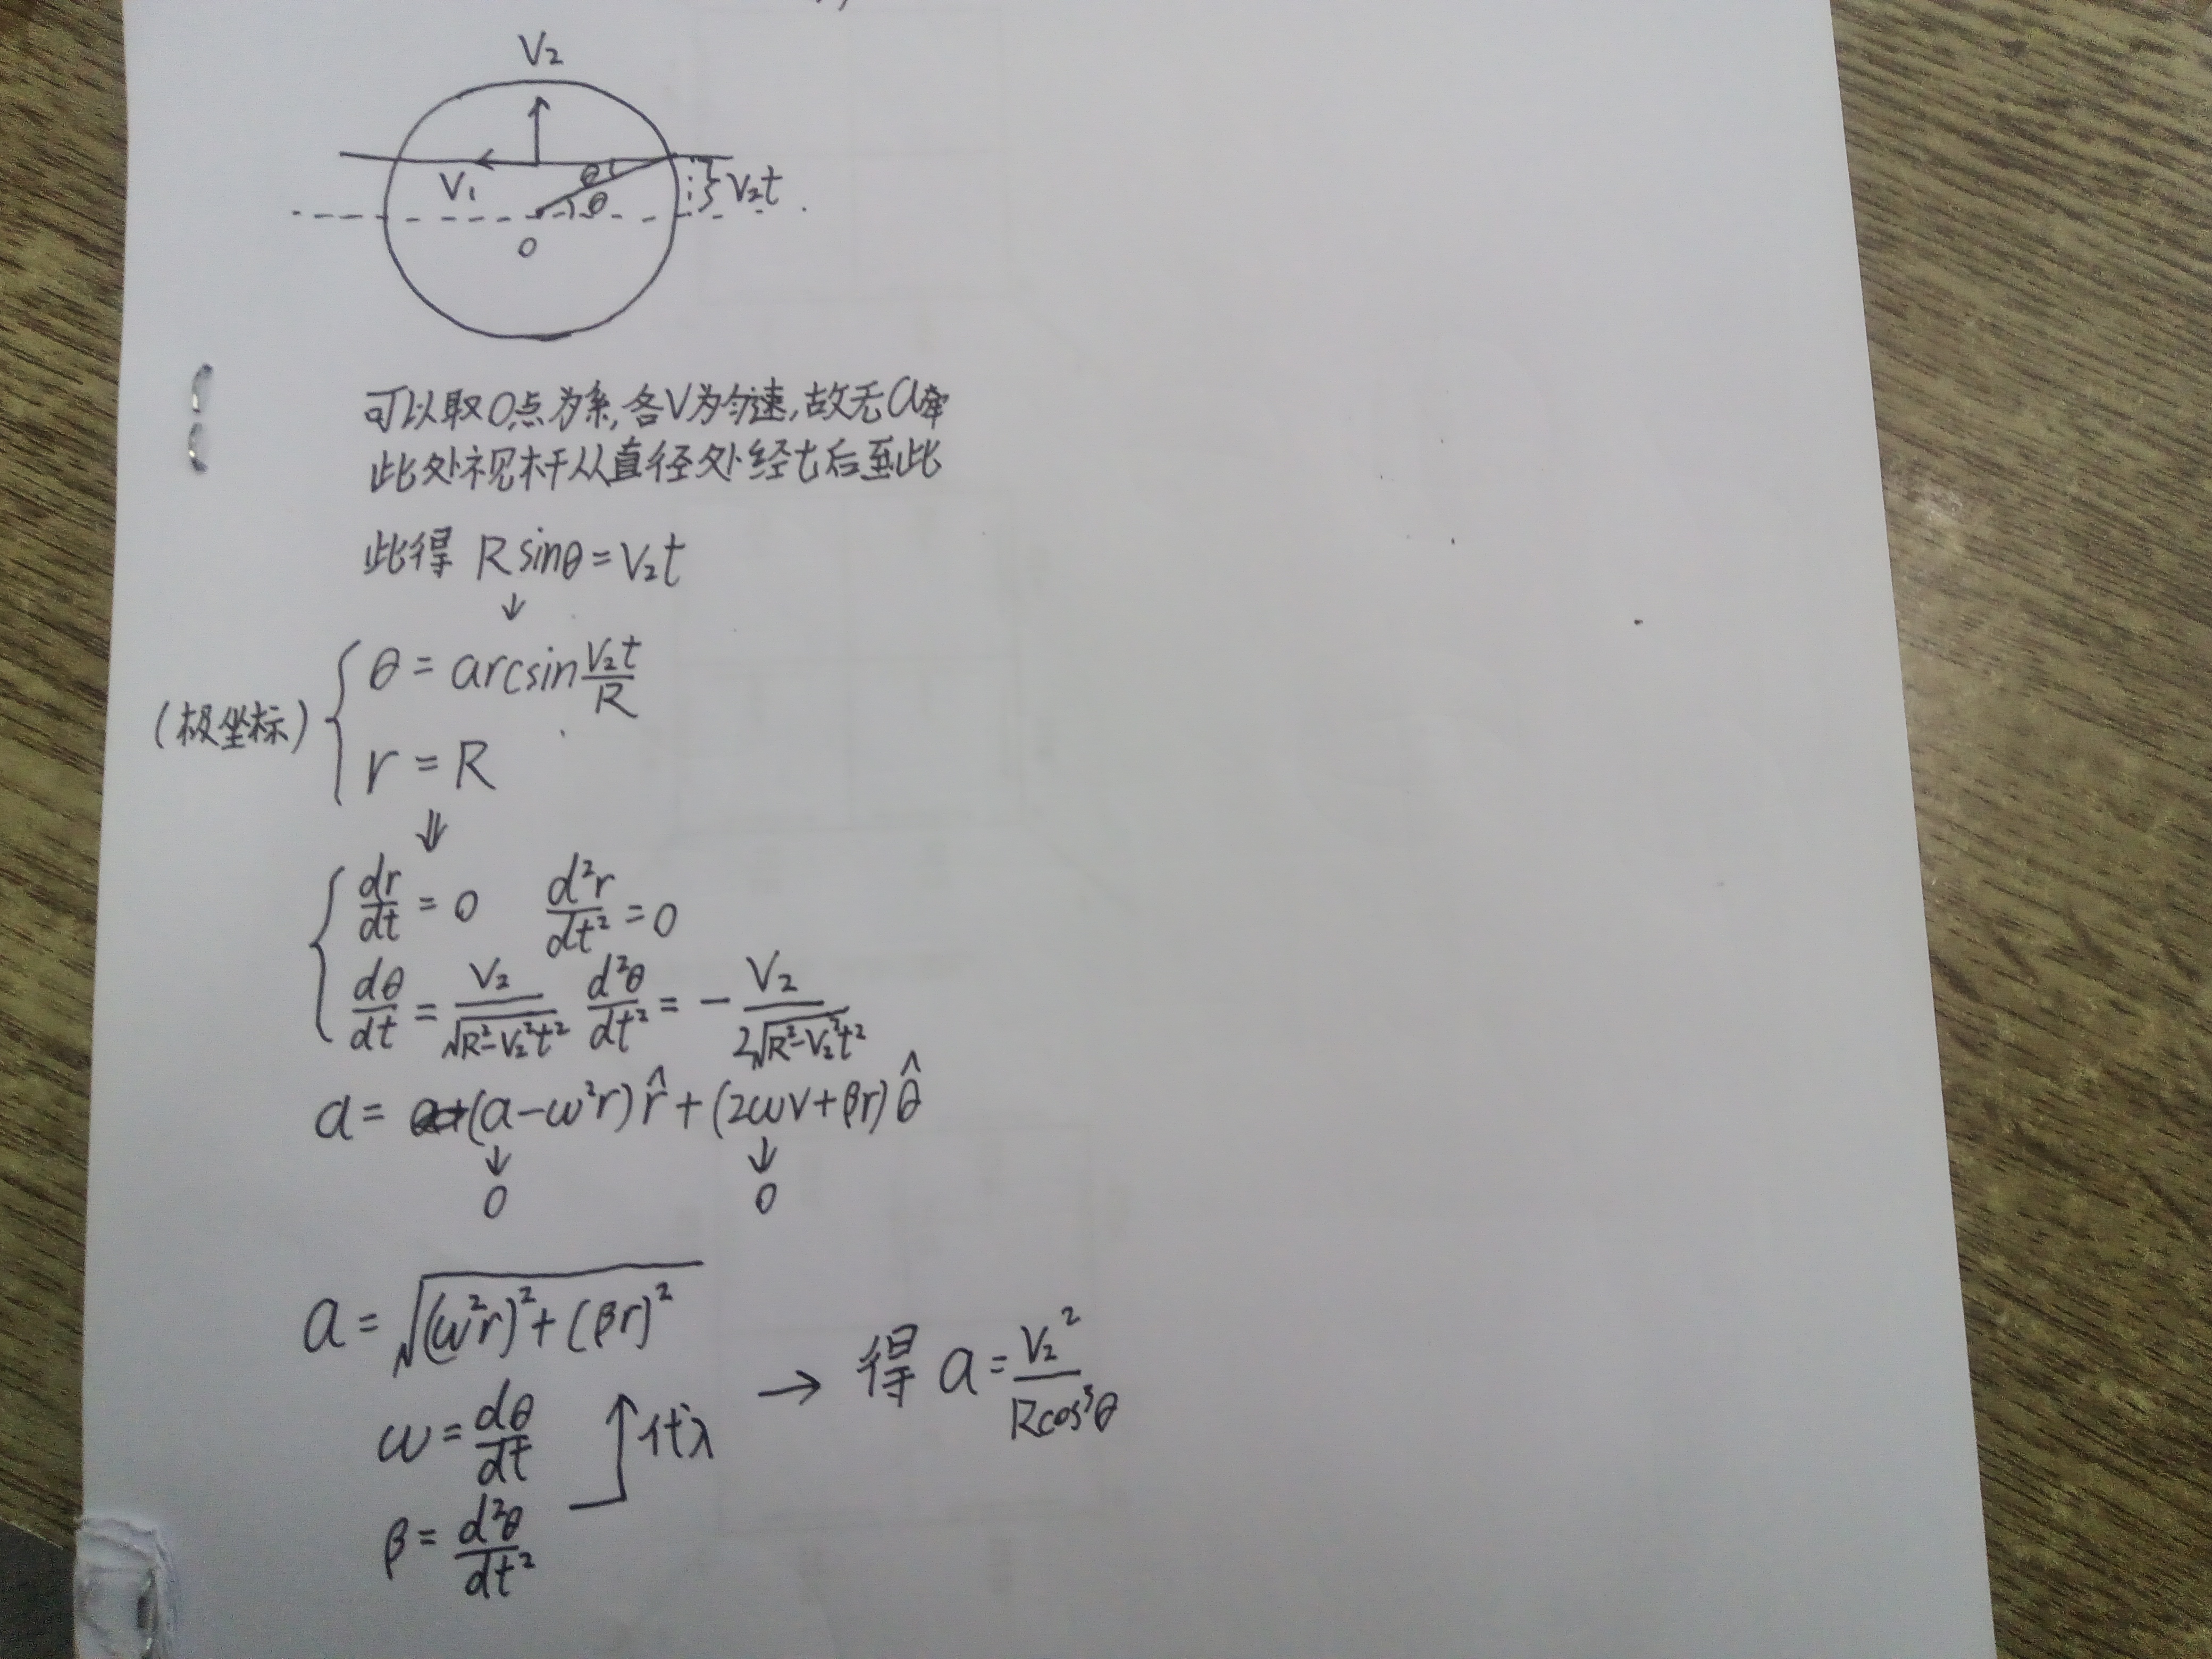 V₂
V₁
θ
θ
V₂t
O
可以取O点为系,各V为匀速,故无a牵
此处视杆从直径处经t后到此
此得 Rsinθ=V₂t
↓
(极坐标)
θ = arcsin V₂t/R
r = R
⇓
dr/dt = 0 d²r/dt² = 0
dθ/dt = V₂/√(R²-V₂²t²) d²θ/dt² = - V₂/2√(R²-V₂²t²)
a = (a-ω²r)r̂ + (2ωv+βr)θ̂
↓ ↓
0 0
a = √((ω²r)²+(βr)²)
→ 得 a = V₂²/Rcos³θ
ω = dθ/dt
代入
β = d²θ/dt²